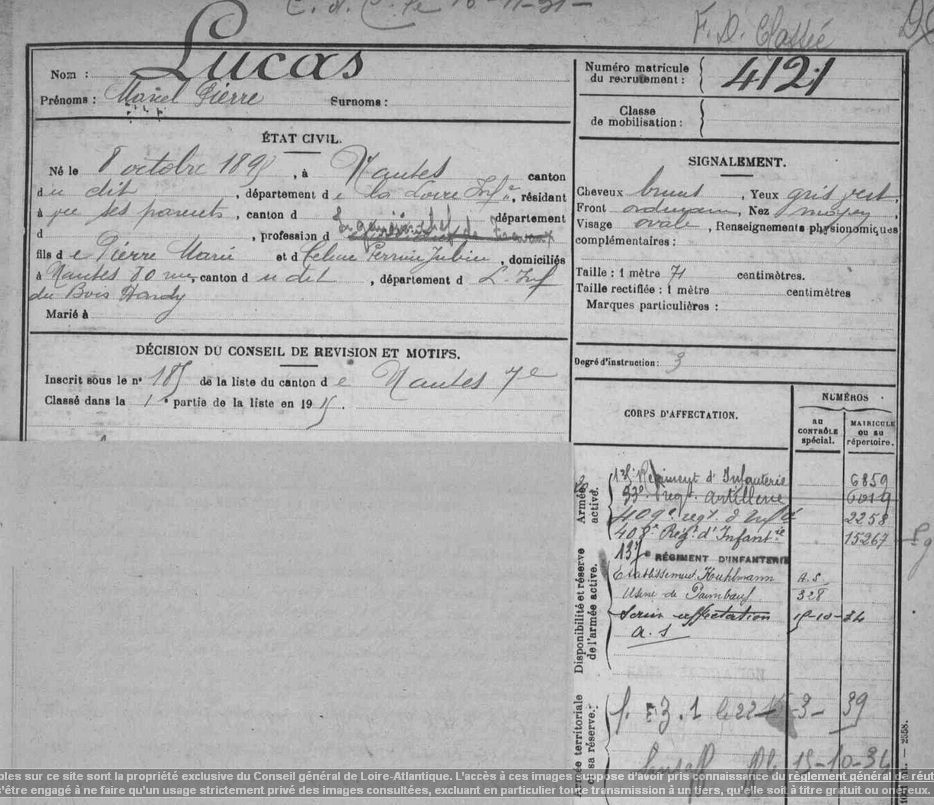 F. D. Classée
Nom : Lucas
Prénoms : Marcel Pierre Surnoms :
Numéro matricule du recrutement : 4121
Classe de mobilisation :
ÉTAT CIVIL.
Né le 8 octobre 1895, à Nantes canton
du dit, département de la Loire Infre, résidant
à ses parents, canton d département
d , profession d
fils de Pierre Marie et d Celine Perrine Jubin, domiciliés
à Nantes 80 rue, canton du dit, département d L. Inf
du Bois Hardy
Marié à
SIGNALEMENT.
Cheveux bruns, Yeux gris vert
Front ordinaire, Nez moyen,
Visage ovale, Renseignements physionomiques
complémentaires :
Taille : 1 mètre 71 centimètres.
Taille rectifiée : 1 mètre centimètres
Marques particulières :
Degré d'instruction : 3
DÉCISION DU CONSEIL DE REVISION ET MOTIFS.
Inscrit sous le n° 185 de la liste du canton de Nantes 7e
Classé dans la 1e partie de la liste en 1915.
CORPS D'AFFECTATION.
NUMÉROS
AU CONTRÔLE spécial.
MATRICULE OU AU répertoire.
Armée active.
Régiment d'Infanterie 6859
regt artillerie 6019
409e regt d'Infie 2258
408e Regt d'Infantie 15267
137e RÉGIMENT D'INFANTERIE
Disponibilité et réserve de l'armée active.
Etablissement Kuhlmann A. S.
Usine de Paimboeuf 328
Sans affectation 15-10-34
a. s
Armée territoriale et sa réserve.
le 22 - 3 - 39
15-10-34
bles sur ce site sont la propriété exclusive du Conseil général de Loire-Atlantique. L'accès à ces images suppose d'avoir pris connaissance du règlement général de réut
s'être engagé à ne faire qu'un usage strictement privé des images consultées, excluant en particulier toute transmission à un tiers, qu'elle soit à titre gratuit ou onéreux.